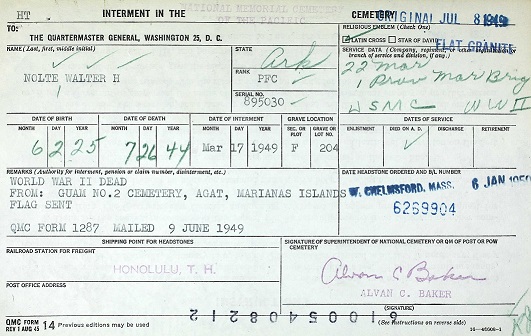 HT INTERMENT IN THE NATIONAL MEMORIAL CEMETERY OF THE PACIFIC CEMETERY ORIGINAL JUL 8 1949
TO:
THE QUARTERMASTER GENERAL, WASHINGTON 25, D. C.
RELIGIOUS EMBLEM (Check One)
LATIN CROSS STAR OF DAVID FLAT GRANITE
NAME (Last, first, middle initial)
NOLTE WALTER H
STATE
Ark
RANK
PFC
SERIAL NO.
895030
SERVICE DATA (Company, regiment, or other organization, branch of service and division, if any.)
22 Mar
1 Prov Mar Brig
USMC WW II
DATE OF BIRTH DATE OF DEATH DATE OF INTERMENT GRAVE LOCATION DATES OF SERVICE
MONTH DAY YEAR MONTH DAY YEAR MONTH DAY YEAR SEC. OR PLOT GRAVE OR LOT NO. ENLISTMENT DIED ON A. D. DISCHARGE RETIREMENT
6 2 25 7 26 44 Mar 17 1949 F 204
REMARKS (Authority for interment, pension or claim number, disinterment, etc.)
WORLD WAR II DEAD
FROM: GUAM NO.2 CEMETERY, AGAT, MARIANAS ISLANDS
FLAG SENT
QMC FORM 1287 MAILED 9 JUNE 1949
DATE HEADSTONE ORDERED AND B/L NUMBER
W. CHELMSFORD, MASS. 6 JAN 1950
6269904
SHIPPING POINT FOR HEADSTONES
RAILROAD STATION FOR FREIGHT
HONOLULU, T. H.
POST OFFICE ADDRESS
SIGNATURE OF SUPERINTENDENT OF NATIONAL CEMETERY OR QM OF POST OR POW CEMETERY
Alvan C Baker
ALVAN C. BAKER
(SIGNATURE)
QMC FORM REV 1 AUG 45 14 Previous editions may be used
(See Instructions on reverse side)